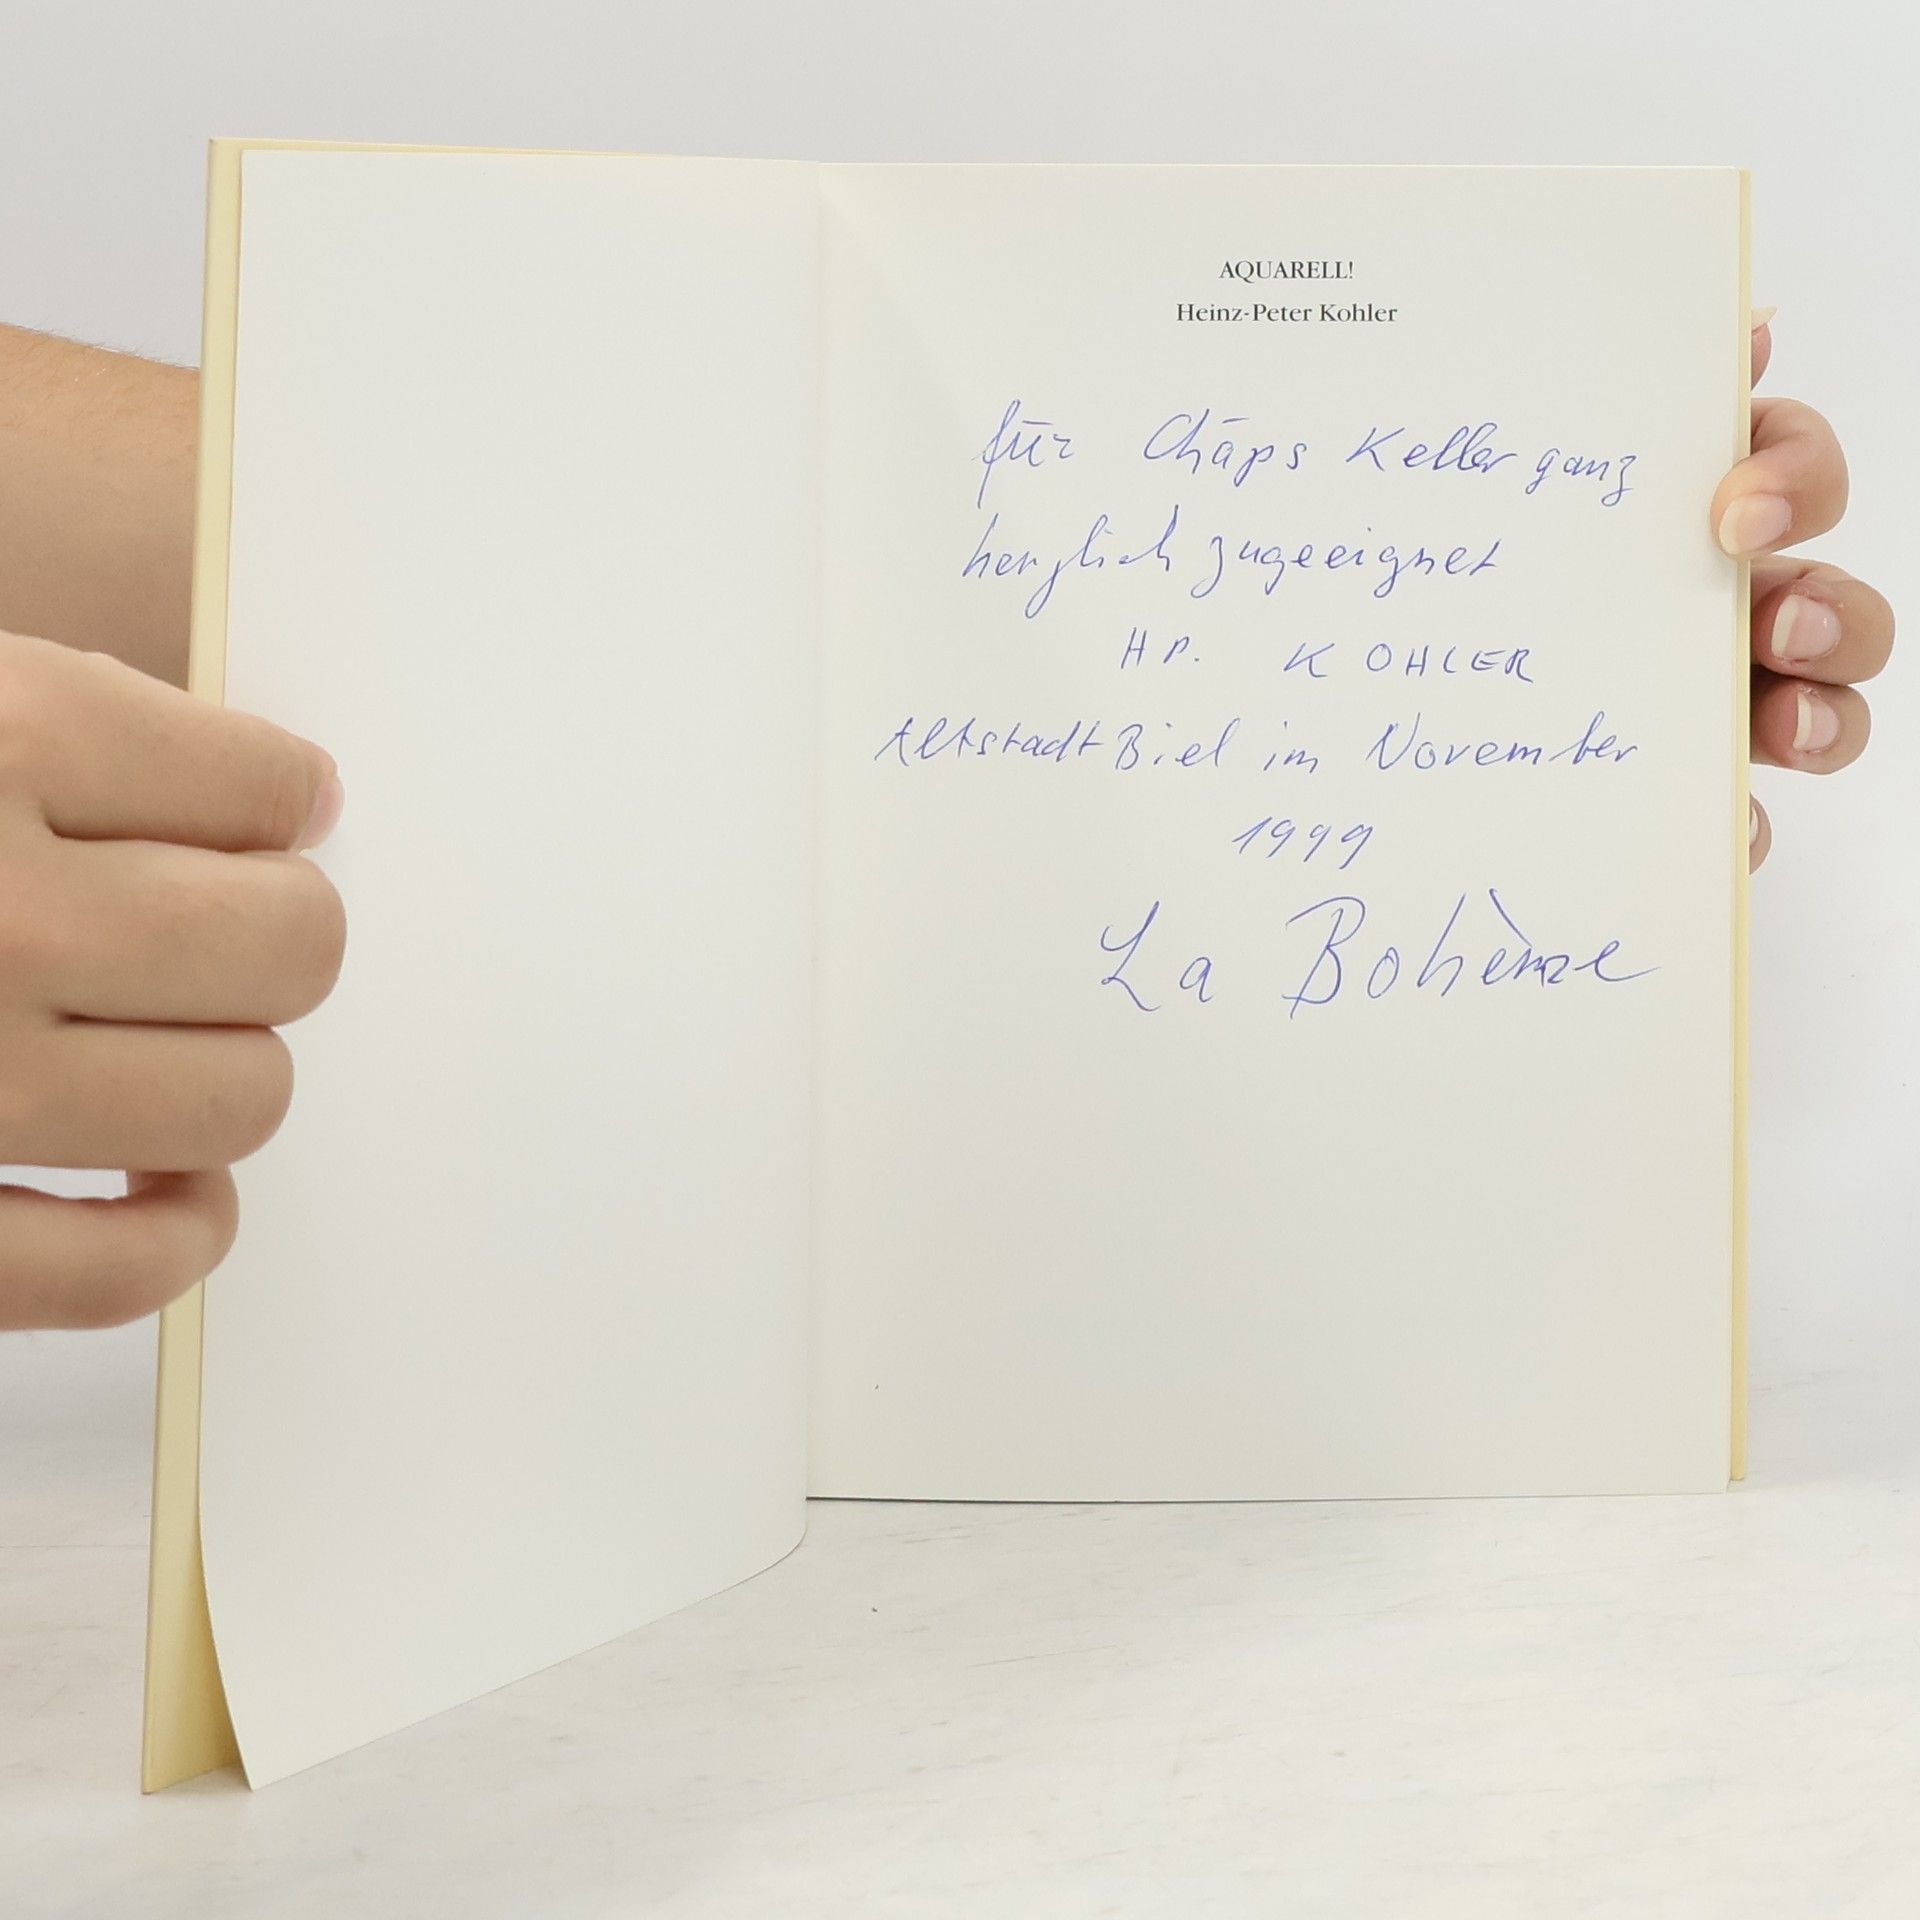 AQUARELL!
Heinz-Peter Kohler
für Chäps Keller ganz
herzlich zugeeignet
HP. KOHLER
Altstadt Biel im November
1999
La Bohème